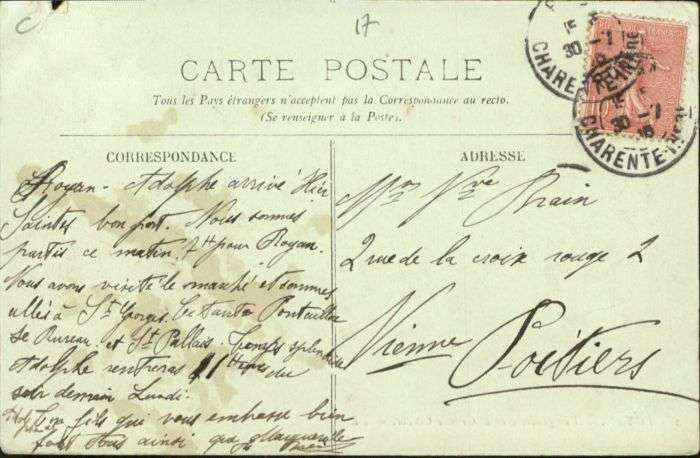 17
CARTE POSTALE
Tous les Pays étrangers n'acceptent pas la Correspondance au recto.
(Se renseigner à la Poste).
CORRESPONDANCE
Royan - Adolphe arrivé Hier
Saintes bon port. Nous sommes
partis ce matin. 7h pour Royan.
Nous avons visité le marché et sommes
allés à St Georges.
de Bureau. et St Pallais. Temps splendide
Adolphe rentreras 11 heures du
soir demain Lundi.
Ton fils qui vous embrasse bien
fort tous ainsi que Marguerite
ADRESSE
Mme Vve Brain
2 rue de la croix rouge 2
Vienne Poitiers
15
30 -1
CHARENTE-INFRE
15
30 -1
CHARENTE-INFRE